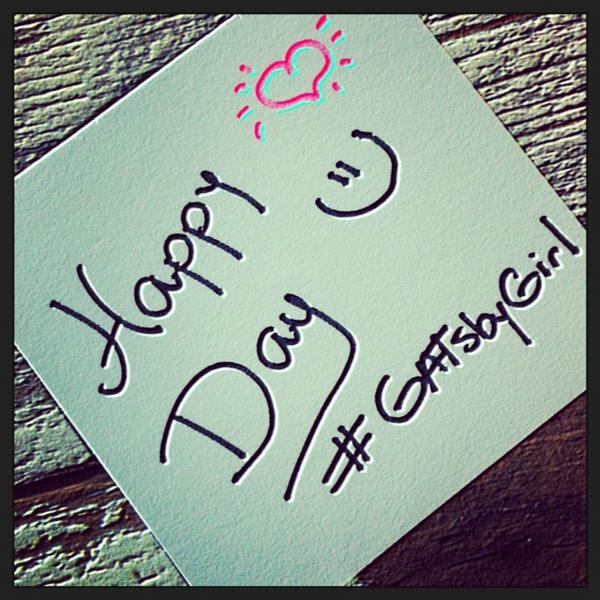 Happy
Day
#GATsbyGirl